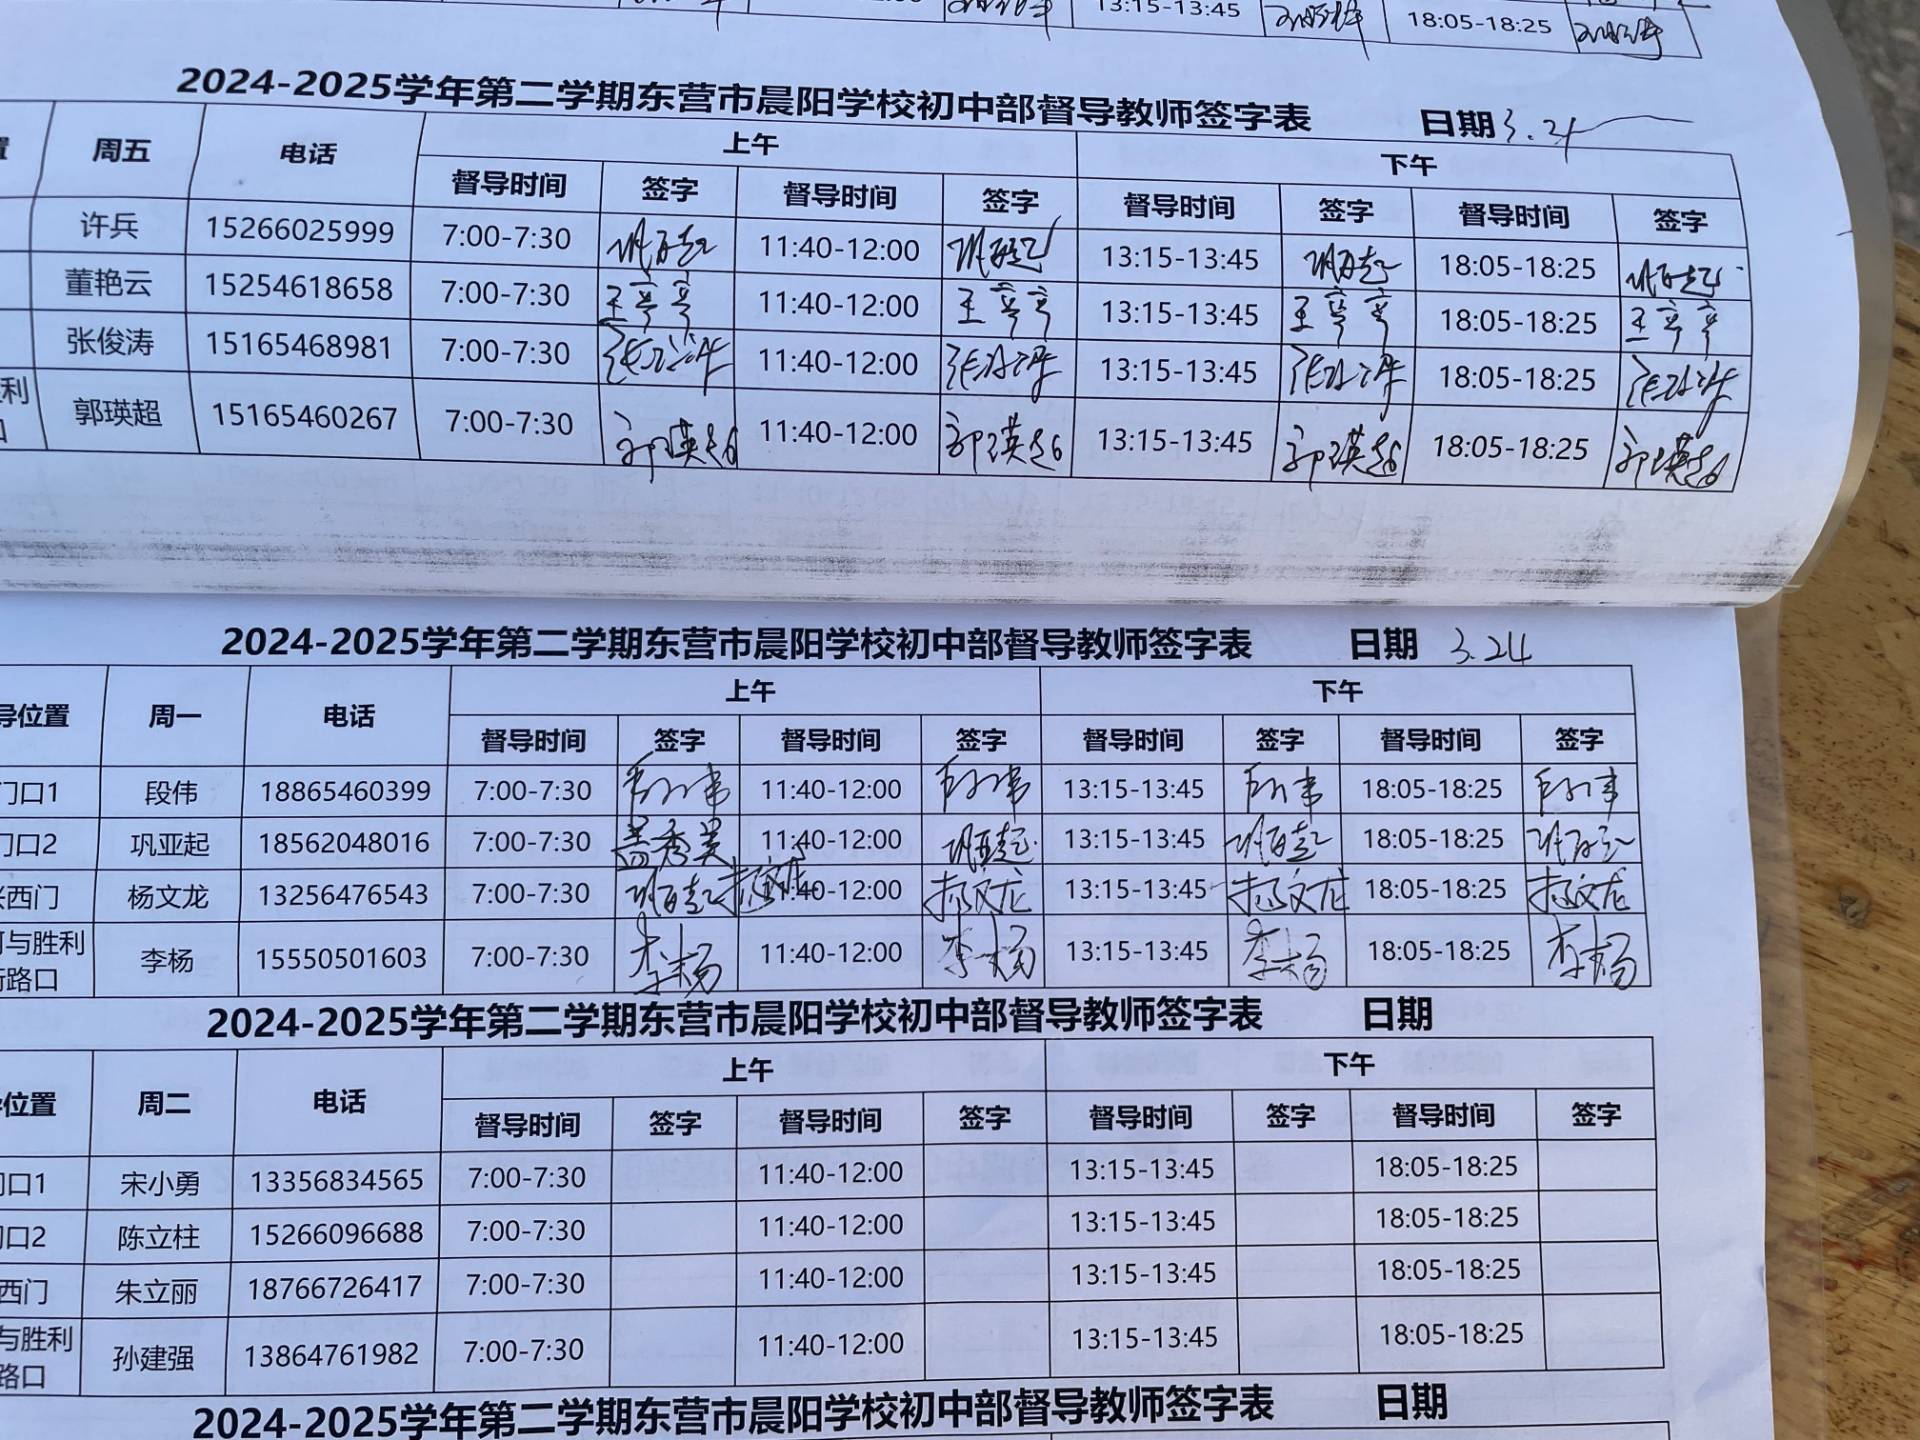 13:15-13:45 18:05-18:25
2024-2025学年第二学期东营市晨阳学校初中部督导教师签字表 日期 3.21
周五 电话 上午 下午
督导时间 签字 督导时间 签字 督导时间 签字 督导时间 签字
许兵 15266025999 7:00-7:30 巩亚起 11:40-12:00 巩亚起 13:15-13:45 巩亚起 18:05-18:25 巩亚起
董艳云 15254618658 7:00-7:30 11:40-12:00 13:15-13:45 18:05-18:25
张俊涛 15165468981 7:00-7:30 11:40-12:00 13:15-13:45 18:05-18:25
利
口 郭瑛超 15165460267 7:00-7:30 郭瑛超 11:40-12:00 郭瑛超 13:15-13:45 郭瑛超 18:05-18:25 郭瑛超
2024-2025学年第二学期东营市晨阳学校初中部督导教师签字表 日期 3.24
导位置 周一 电话 上午 下午
督导时间 签字 督导时间 签字 督导时间 签字 督导时间 签字
门口1 段伟 18865460399 7:00-7:30 段伟 11:40-12:00 段伟 13:15-13:45 段伟 18:05-18:25 段伟
门口2 巩亚起 18562048016 7:00-7:30 11:40-12:00 巩亚起 13:15-13:45 巩亚起 18:05-18:25 巩亚起
西门 杨文龙 13256476543 7:00-7:30 巩亚起 杨文龙 11:40-12:00 杨文龙 13:15-13:45 杨文龙 18:05-18:25 杨文龙
与胜利
路口 李杨 15550501603 7:00-7:30 李杨 11:40-12:00 李杨 13:15-13:45 李杨 18:05-18:25 李杨
2024-2025学年第二学期东营市晨阳学校初中部督导教师签字表 日期
位置 周二 电话 上午 下午
督导时间 签字 督导时间 签字 督导时间 签字 督导时间 签字
口1 宋小勇 13356834565 7:00-7:30 11:40-12:00 13:15-13:45 18:05-18:25
口2 陈立柱 15266096688 7:00-7:30 11:40-12:00 13:15-13:45 18:05-18:25
西门 朱立丽 18766726417 7:00-7:30 11:40-12:00 13:15-13:45 18:05-18:25
与胜利
路口 孙建强 13864761982 7:00-7:30 11:40-12:00 13:15-13:45 18:05-18:25
2024-2025学年第二学期东营市晨阳学校初中部督导教师签字表 日期